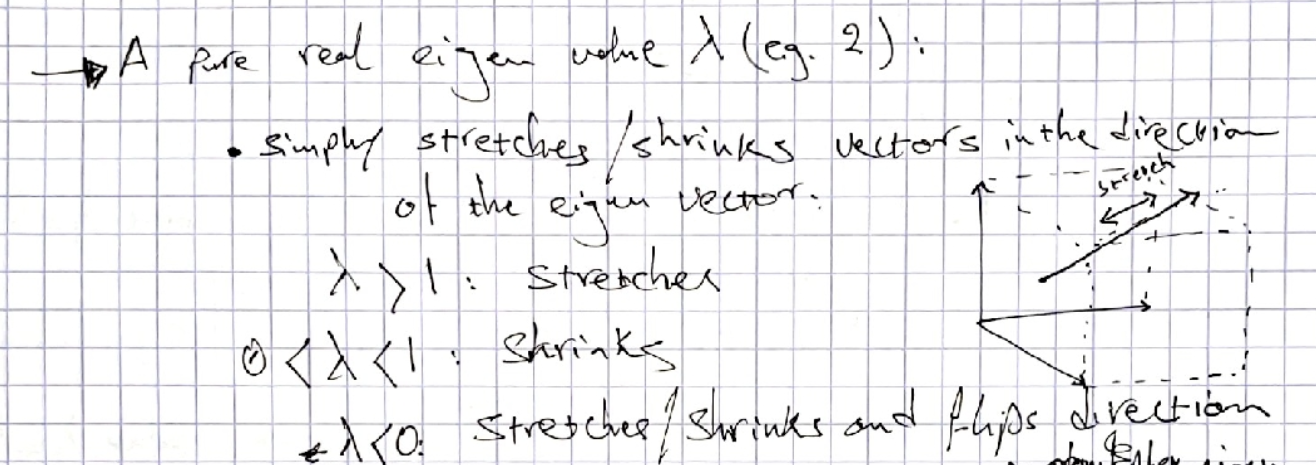 → A pure real eigen value λ (eg. 2):
• simply stretches/shrinks vectors in the direction
of the eigen vector.
stretch
λ > 1: stretches
0 < λ < 1: shrinks
λ < 0: stretches/shrinks and flips direction